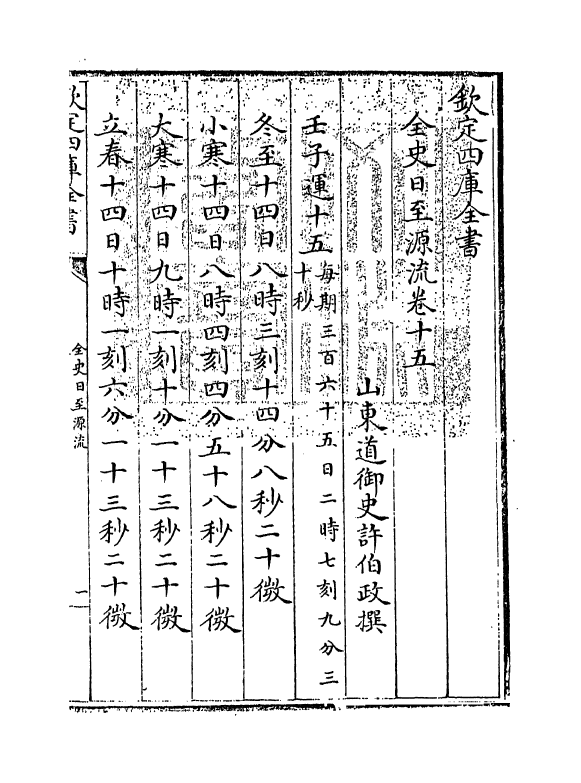 欽定四庫全書
全史日至源流卷十五
山東道御史許伯政撰
壬子運十五每期三百六十五日二時七刻九分三十秒
冬至十四日八時三刻十四分八秒二十微
小寒十四日八時四刻四分五十八秒二十微
大寒十四日九時一刻十分一十三秒二十微
立春十四日十時一刻六分一十三秒二十微
欽定四庫全書
全史日至源流
一